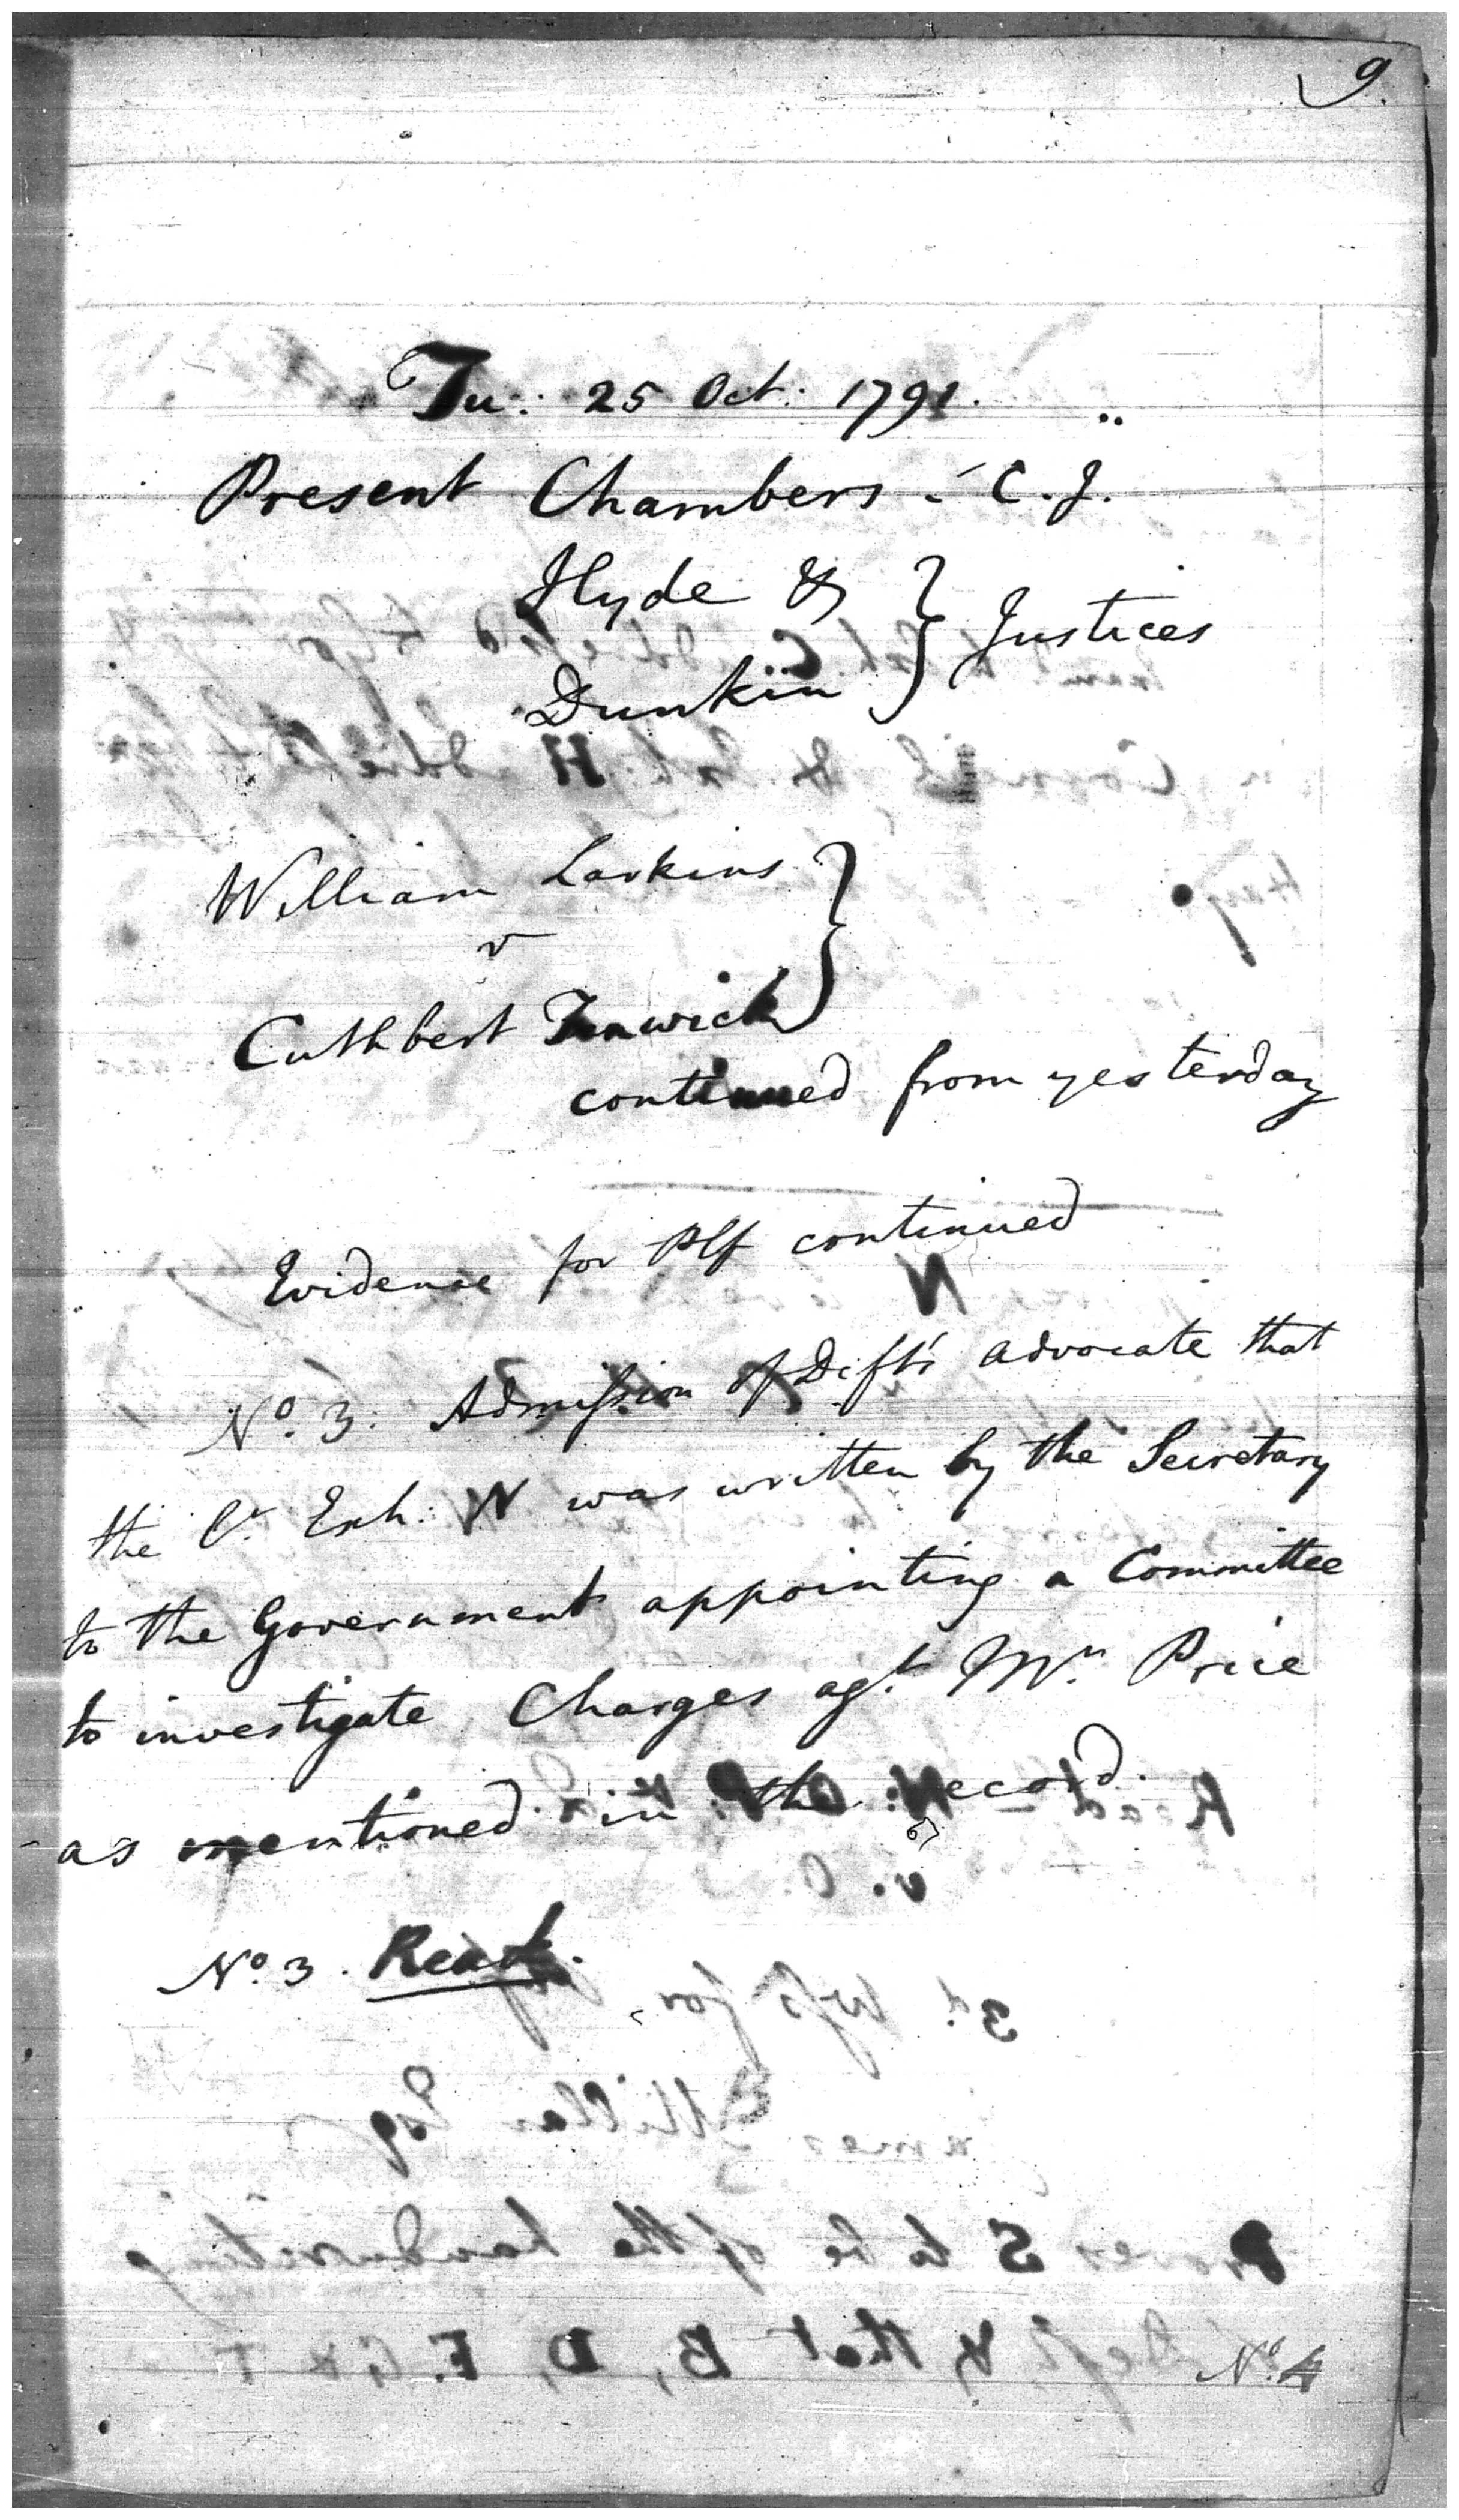 9.
Tu: 25 Oct: 1791.
Present Chambers - C. J.
Hyde &
Justices
Dunkin
William Larkins
v
Cuthbert Fenwick
continued from yesterday
Evidence for Plf continued
N
No. 3. Admission of Deft's advocate that
the Exh: N was written by the Secretary
to the Government appointing a Committee
to investigate Charges agt. Mr. Price
as mentioned in the record.
No. 3. Read.
No. 4